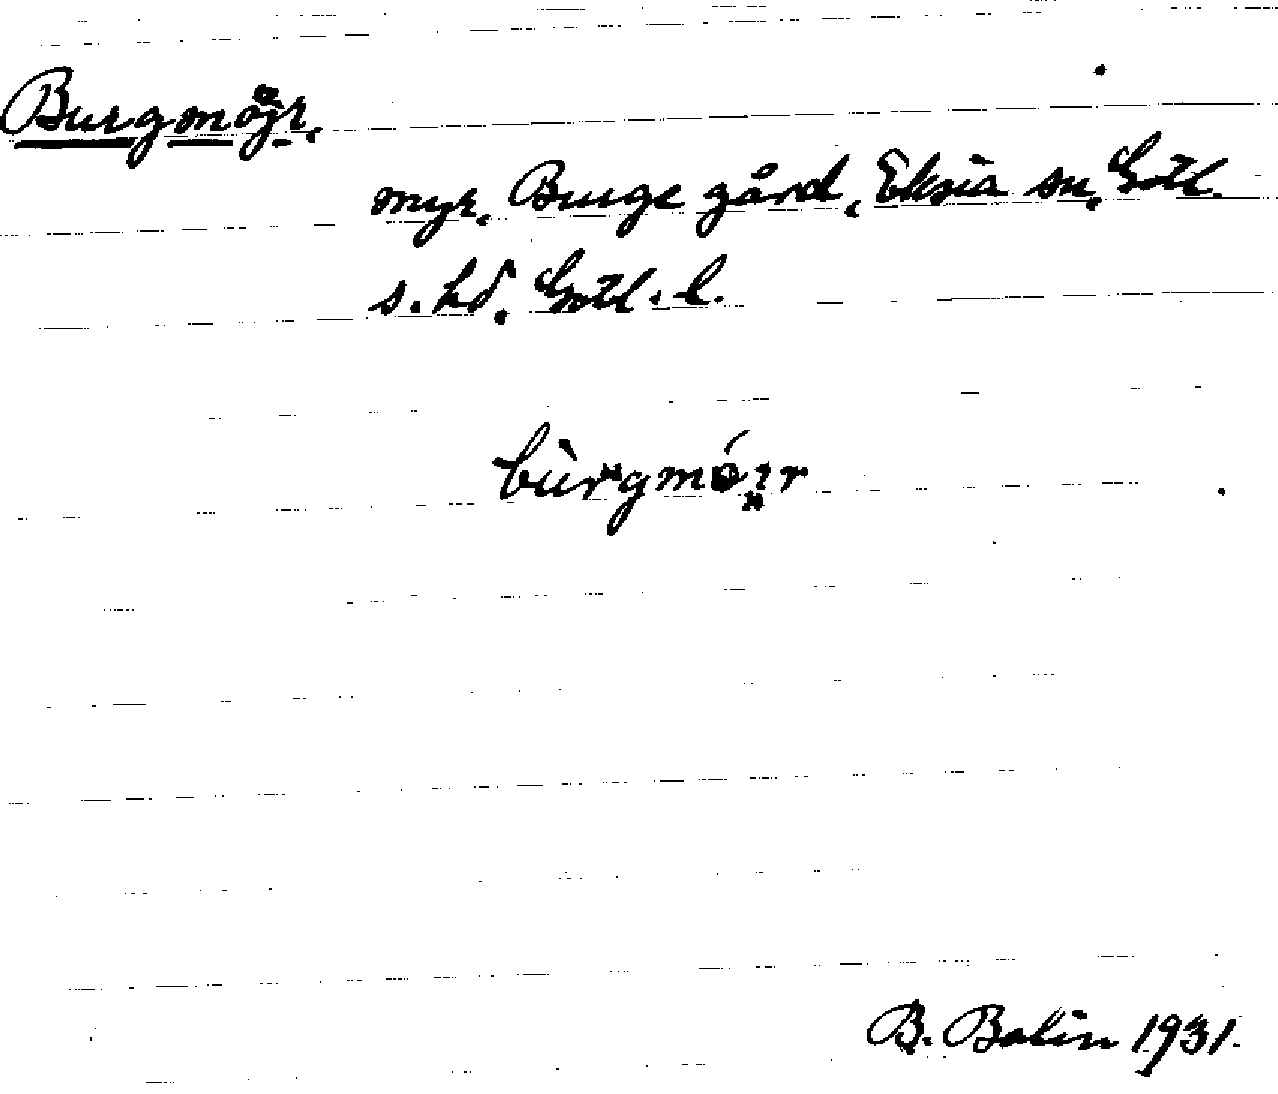 Burgmöjr.
myr, Burge gård, Eksta sn, Gotl.
s. hd, Gotl. l.
bùrgmóır
B. Bolin 1931.